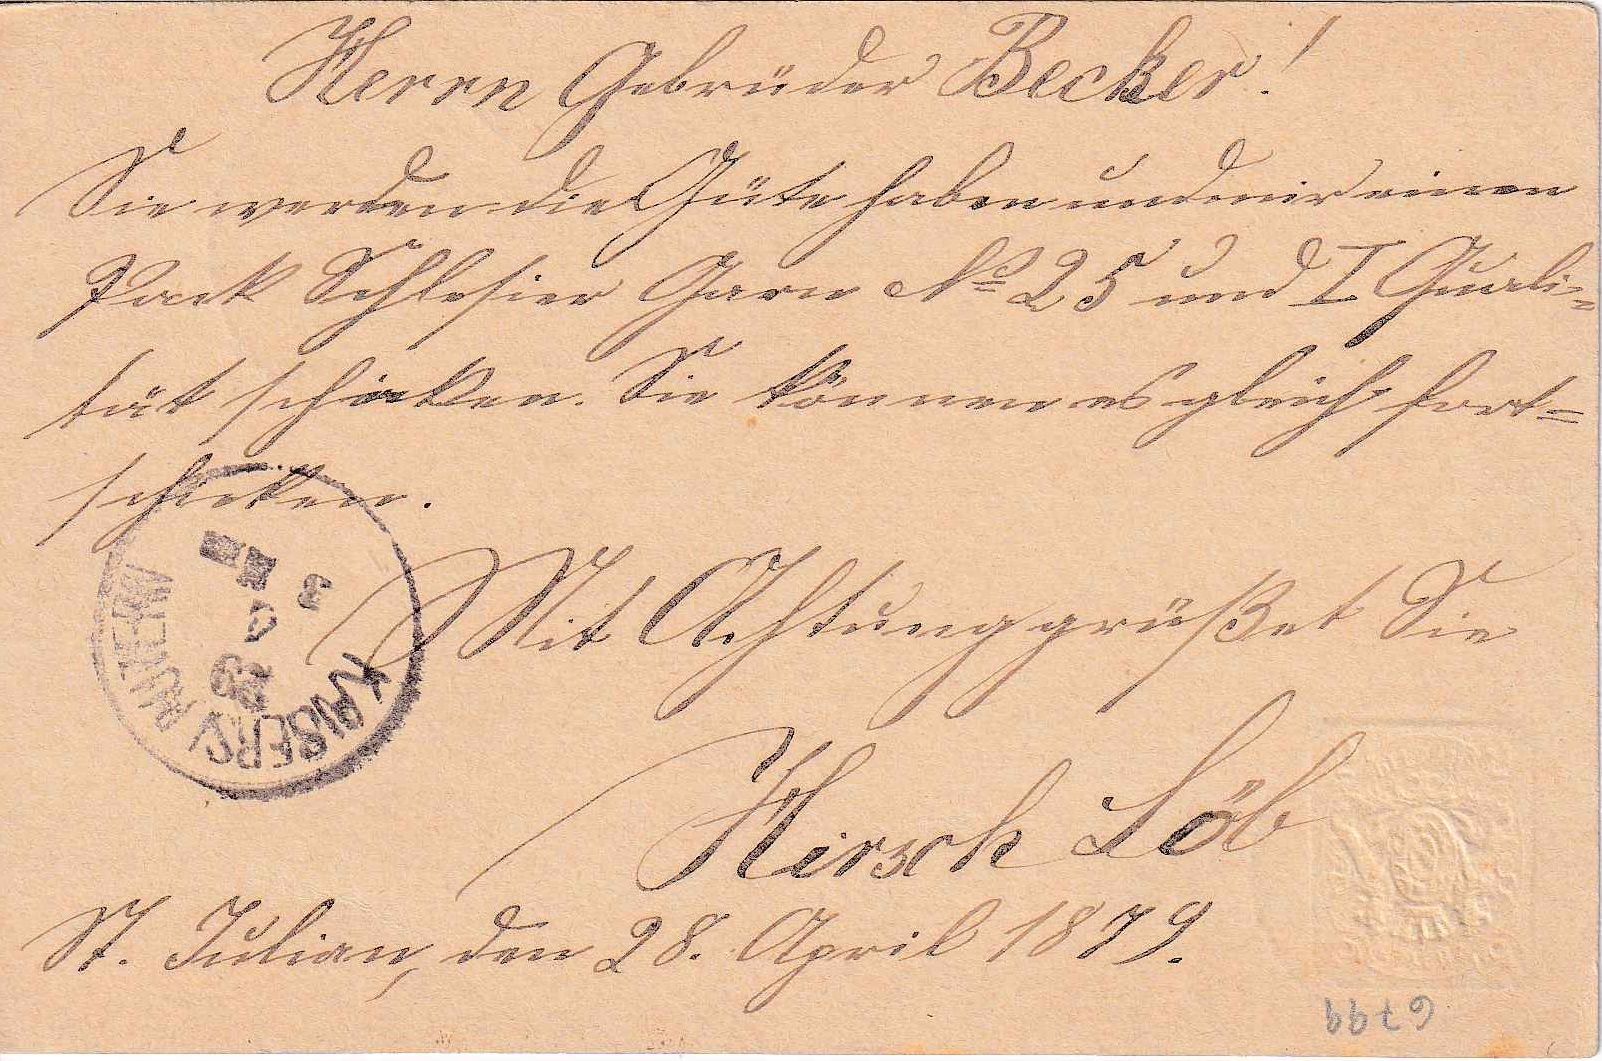 Herrn Gebrüder Becker!
Sie werden die Güte haben und mir einen
Pack Schlesier Garn No 25 und I Quali=
tät schicken. Sie können es gleich fort=
schicken.
Mit Achtung grüßet Sie
Hirsch Löb
St. Julian, den 28. April 1879.
KAISERSLAUTERN
29
4
6799